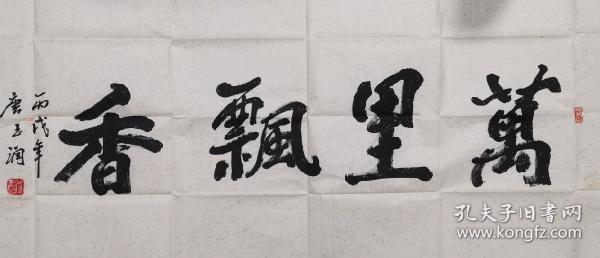 萬里飄香
丙戌年
唐玉润
孔夫子旧书网
www.kongfz.com